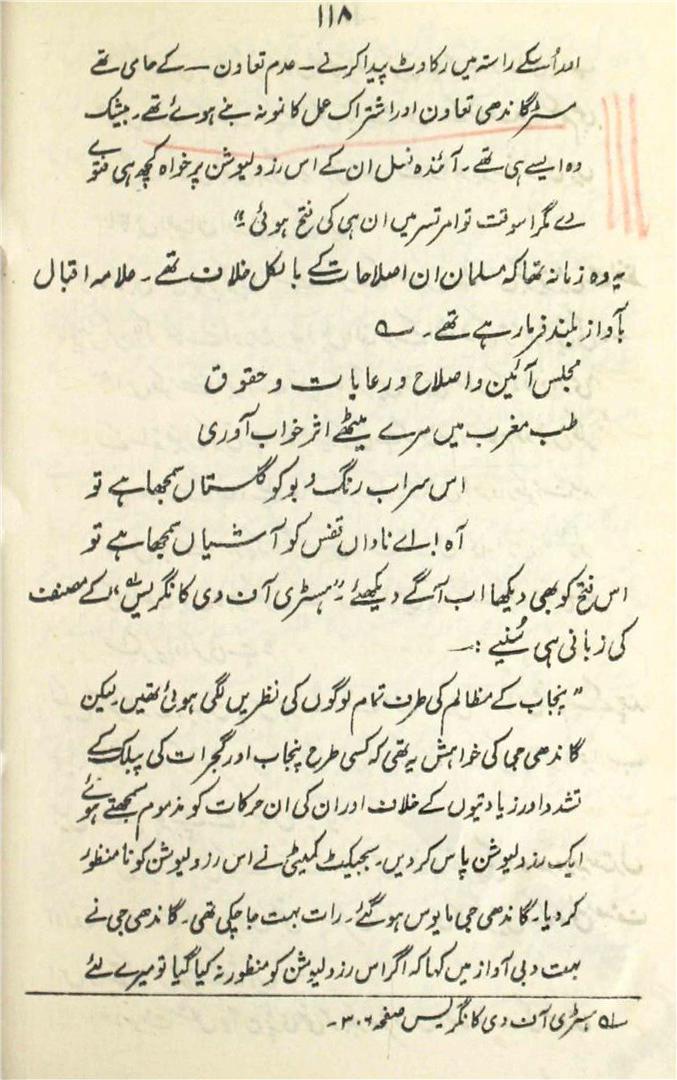 ۱۱۸
اور اُسکے راستہ میں رکاوٹ پیدا کرنے ــ عدم تعاون ــ کے حامی تھے
مسٹر گاندھی تعاون اور اشتراک عمل کا نمونہ بنے ہوئے تھے۔ بیشک
وہ ایسے ہی تھے۔ آئندہ نسل ان کے اس رزولیوشن پر خواہ کچھ ہی فتوے
دے مگر اسوقت تو امرتسر میں ان ہی کی فتح ہوئی"
یہ وہ زمانہ تھا کہ مسلمان ان اصلاحات کے بالکل خلاف تھے۔ علامہ اقبال
بآواز بلند فرما رہے تھے۔ ؎
مجلس آئین و اصلاح و رعایات و حقوق
طب مغرب میں مزے میٹھے اثر خواب آوری
اس سراب رنگ و بو کو گلستاں سمجھا ہے تو
آہ! اے ناداں قفس کو آشیاں سمجھا ہے تو
اس فتح کو بھی دیکھا اب آگے دیکھئے۔ "ہسٹری آف دی کانگریس؎" کے مصنف
کی زبانی ہی سُنیے :۔
"پنجاب کے مظالم کی طرف تمام لوگوں کی نظریں لگی ہوئی تھیں۔ لیکن
گاندھی جی کی خواہش یہ تھی کہ کسی طرح پنجاب اور گجرات کی پبلک کے
تشدد اور زیادتیوں کے خلاف اور ان کی ان حرکات کو مذموم سمجھتے ہوئے
ایک رزولیوشن پاس کر دیں۔ سبجیکٹ کمیٹی نے اس رزولیوشن کو نا منظور
کر دیا۔ گاندھی جی مایوس ہو گئے۔ رات بہت جا چکی تھی۔ گاندھی جی نے
بہت دبی آواز میں کہا کہ اگر اس رزولیوشن کو منظور نہ کیا گیا تو میرے لئے
؎ ہسٹری آف دی کانگریس صفحہ ۳۰۶۔